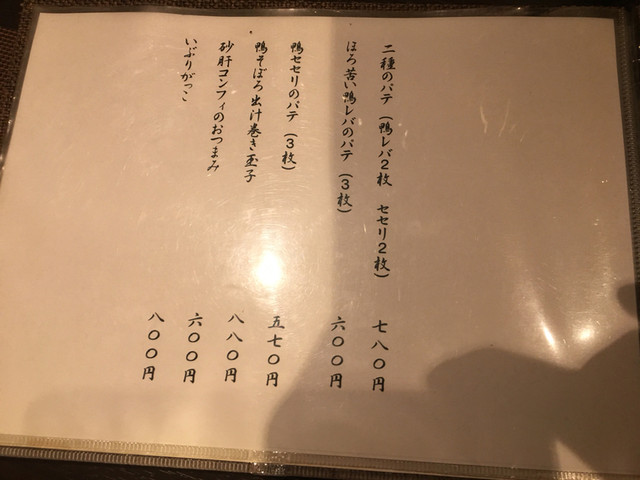 二種のパテ（鴨レバ2枚　セセリ2枚）　七八〇円
ほろ苦い鴨レバのパテ（3枚）　六〇〇円
鴨セセリのパテ（3枚）　五七〇円
鴨そぼろ出汁巻き玉子　八八〇円
砂肝コンフィのおつまみ　六〇〇円
いぶりがっこ　八〇〇円